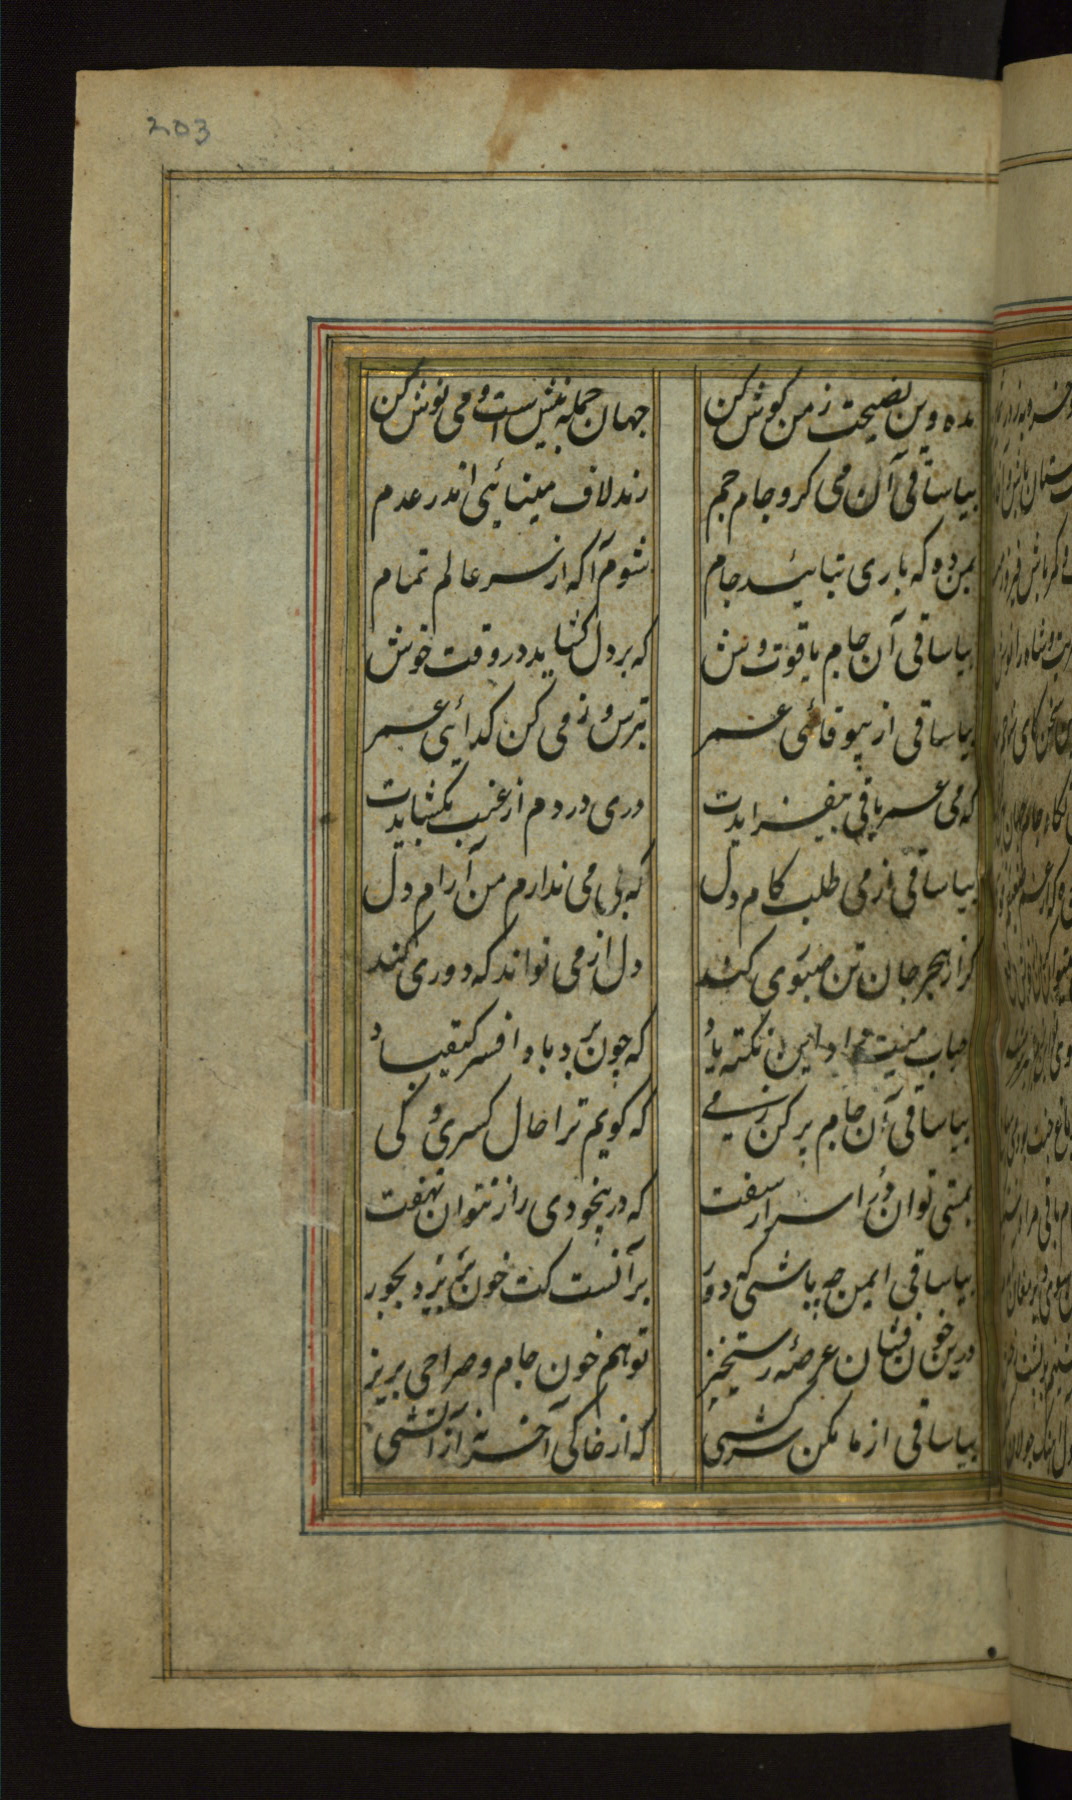 203
بده وین نصیحت ز من گوش کن جهان جمله نیش است و می نوش کن
بیا ساقی آن می کزو جام جم زند لاف بینائی اندر عدم
بمن ده که باری بتائید جام شوم آگه از سر عالم تمام
بیا ساقی آن جام یاقوت وش که بر دل گشاید در وقت خوش
بیا ساقی از بیوفائی عمر بترس و ز می کن گدائی عمر
که می عمر باقی بیفزایدت دری در دم از غیب بگشایدت
بیا ساقی از می طلب کام دل که بی می ندارم من آرام دل
گر از هجر جان تن صبوری کند دل از می تواند که دوری کند
حباب میت داد این نکته یاد که چون برد باد افسر کیقباد
بیا ساقی آن جام پر کن ز می که گویم ترا حال کسری و کی
بمستی توان در اسرار سفت که در بیخودی راز نتوان نهفت
بیا ساقی ایمن چه باشی که دور بر آنست کت خون بریزد بجور
درین خون فشان عرصهٔ رستخیز تو هم خون جام و صراحی بریز
بیا ساقی از ما مکن سرکشی که از خاکی آخر نه از آتشی